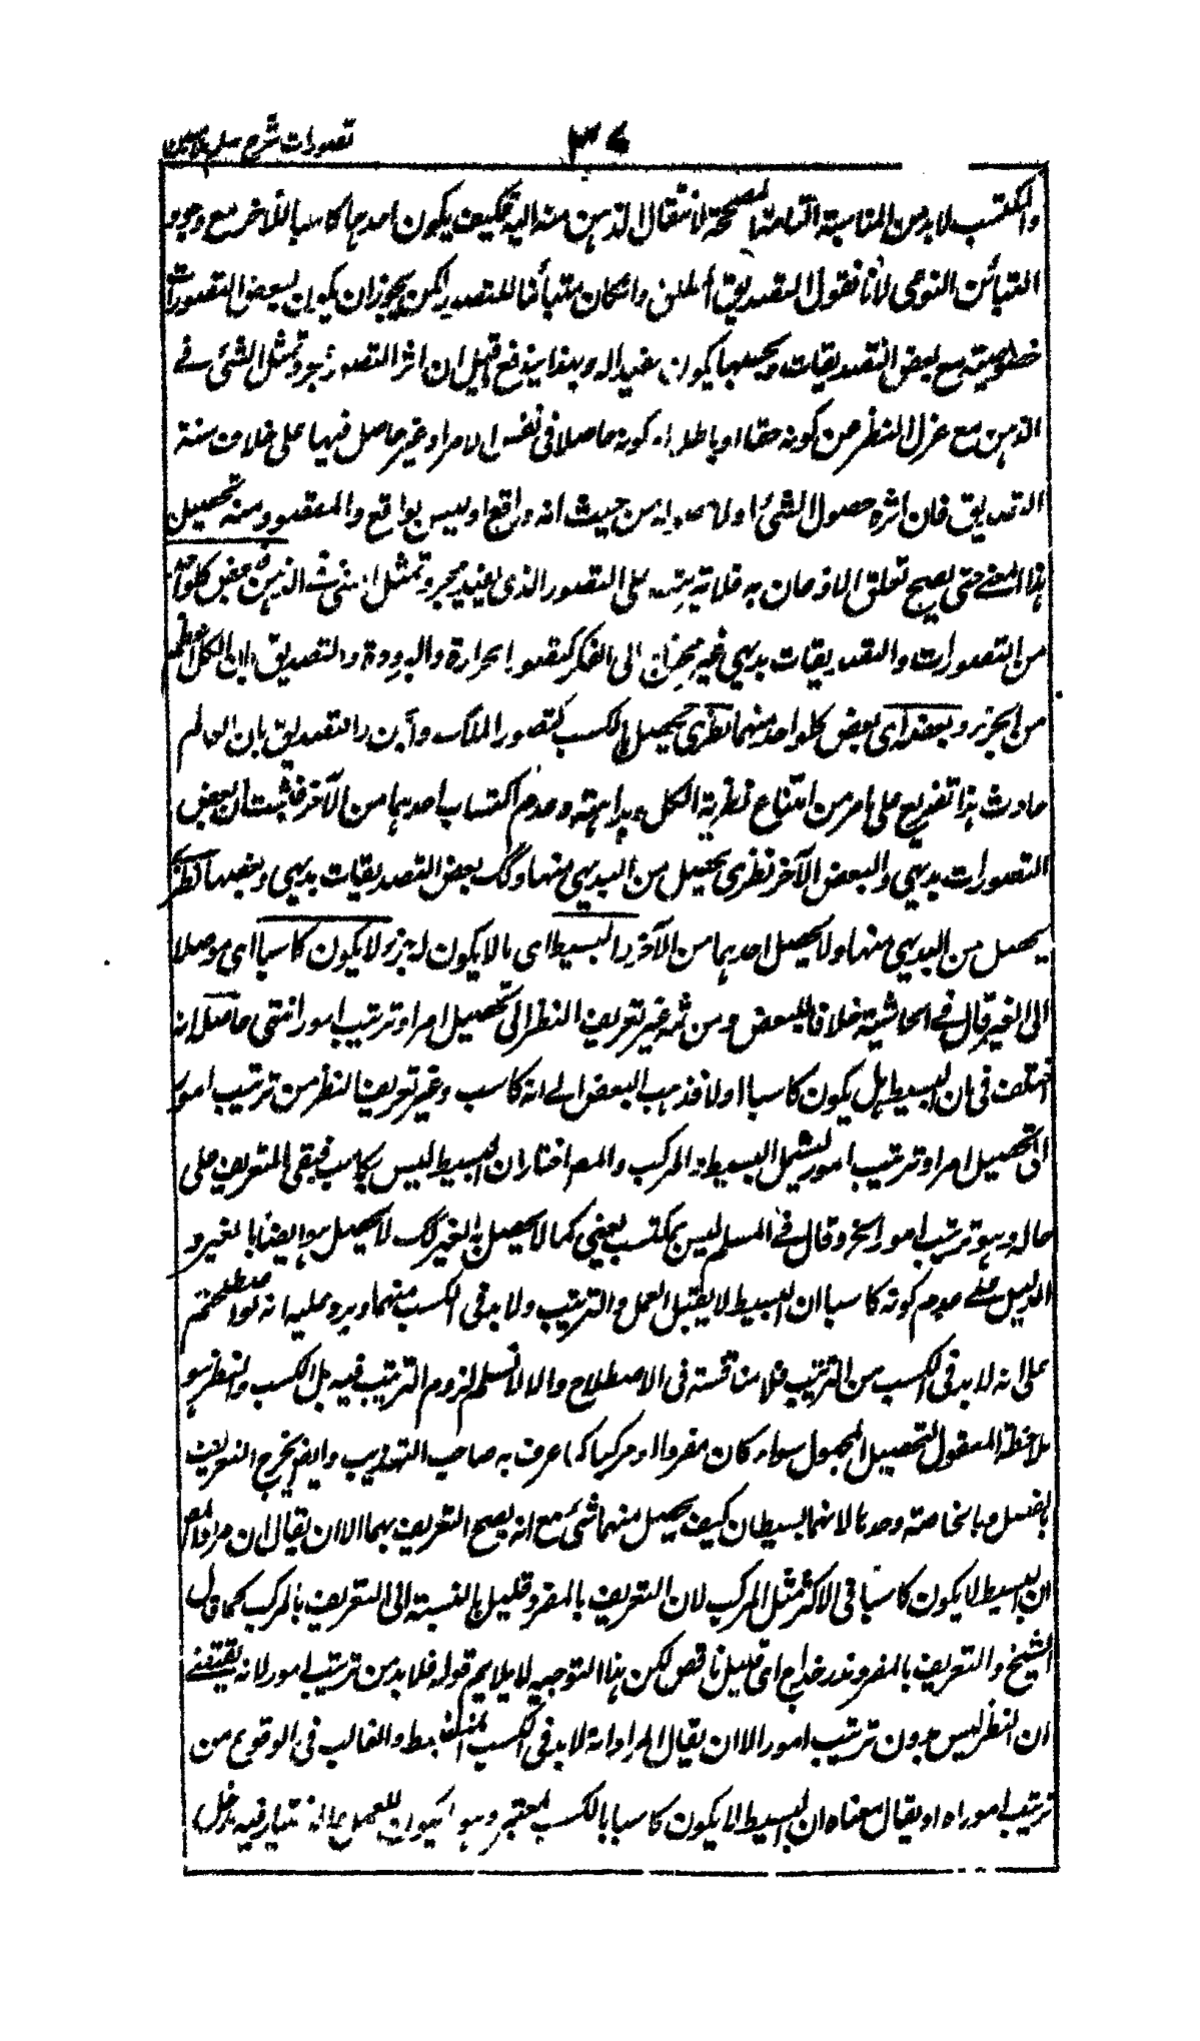 ٣٧
تصورات شرح سلم
والمكتسب لا بد من المناسبة التامة المصححة لانتقال الذهن منه اليه فكيف يكون احدهما كاسبا للآخر مع وجود
التبائن النوعى لانا نقول التصديق المطلق وان كان متبائنا للتصور لكن يجوز ان يكون لبعض التصورات
خصوصية مع بعض التصديقات وبحسبها يكون مفيدا له وبهذا يندفع ما قيل ان اثر التصور مجرد تمثل الشئ فى
الذهن مع عزل النظر عن كونه حقا او باطلا اى كونه حاصلا فى نفس الامر او غير حاصل فيها على خلاف سنة
التصديق فان اثره حصول الشئ او لا حصوله من حيث انه واقع او ليس بواقع والمقصود منه تحصيل
هذا المعنى حتى يصح تعلق الاذعان به فلا يترتب على التصور الذى يفيد مجرد تمثل الشئ فى الذهن وبعض كل واحد
من التصورات والتصديقات بديهى غير محتاج الى الفكر كتصور الحرارة والبرودة والتصديق بان الكل اعظم
من الجزء وبعضه اى بعض كل واحد منهما نظرى يحصل بالكسب كتصور الملك والجن والتصديق بان العالم
حادث هذا تفريع على ما مر من امتناع نظرية الكل وبداهته وعدم اكتساب احدهما من الآخر فثبت ان بعض
التصورات بديهى والبعض الآخر نظرى يحصل من البديهى منها وكذلك بعض التصديقات بديهى وبعضها نظرى
يحصل من البديهى منها ولا يحصل احدهما من الآخر والبسيط اى ما لا يكون له جزء لا يكون كاسبا اى موصلا
الى الغير قال فى الحاشية خلافا للبعض ومن ثمه غير تعريف النظر الى تحصيل امر او ترتيب امور انتهى حاصله انه
اختلف فى ان البسيط هل يكون كاسبا او لا فذهب البعض الى انه كاسب وغير تعريف النظر من ترتيب امور
الى تحصيل امر او ترتيب امور ليشمل البسيط والمركب والمص اختار ان البسيط ليس بكاسب فبقى التعريف على
حاله وهو ترتيب امور الخ وقال فى المسلم ليس بمكتسب يعنى كما لا يحصل به الغير كذلك لا يحصل هو ايضا بالغير و
الدليل على عدم كونه كاسبا ان البسيط لا يقبل العمل والترتيب ولا بد فى الكسب منهما ويرد عليه انه لو اصطلحتم
على انه لا بد فى الكسب من الترتيب فلا مناقشة فى الاصطلاح والا لا نسلم لزوم الترتيب فيه بل الكسب والنظر هو
ملاحظة المعقول لتحصيل المجهول سواء كان مفردا او مركبا كما عرف به صاحب التهذيب وايضا يخرج التعريف
بالفصل وبالخاصة وحدها لانهما بسيطان كيف يحصل منهما شئ مع انه يصح التعريف بهما الا ان يقال ان مراد المص
ان البسيط لا يكون كاسبا فى الاكثر مثل المركب لان التعريف بالمفرد قليل بالنسبة الى التعريف بالمركب كما قال
الشيخ والتعريف بالمفرد نذر خداج اى قليل ناقص لكن هذا التوجيه لا يلايم قوله فلا بد من ترتيب امور لانه يقتضى
ان النظر ليس بدون ترتيب امور الا ان يقال المراد انه لا بد فى الكسب المنضبط والغالب فى الوقوع من
ترتيب امور اه او يقال معناه ان البسيط لا يكون كاسبا بالكسب المعتبر وهو ما يكون للعمل والاختيار فيه دخل